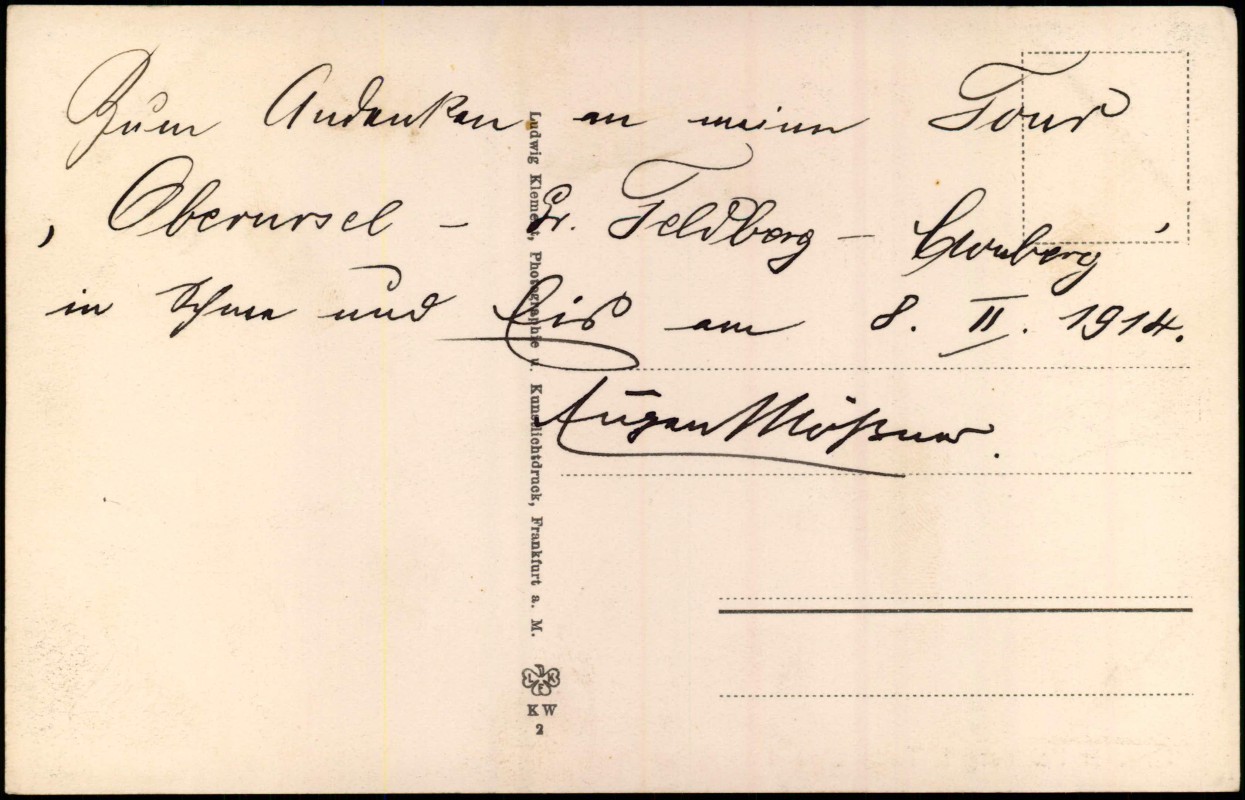 Zum Andenken an meine Tour
„Oberursel – Gr. Feldberg – Cronberg“
in Schnee und Eis am 8. II. 1914.
Eugen Mößner.
Ludwig Klement, Photographie u. Kunstlichtdruck, Frankfurt a. M.
KW
2